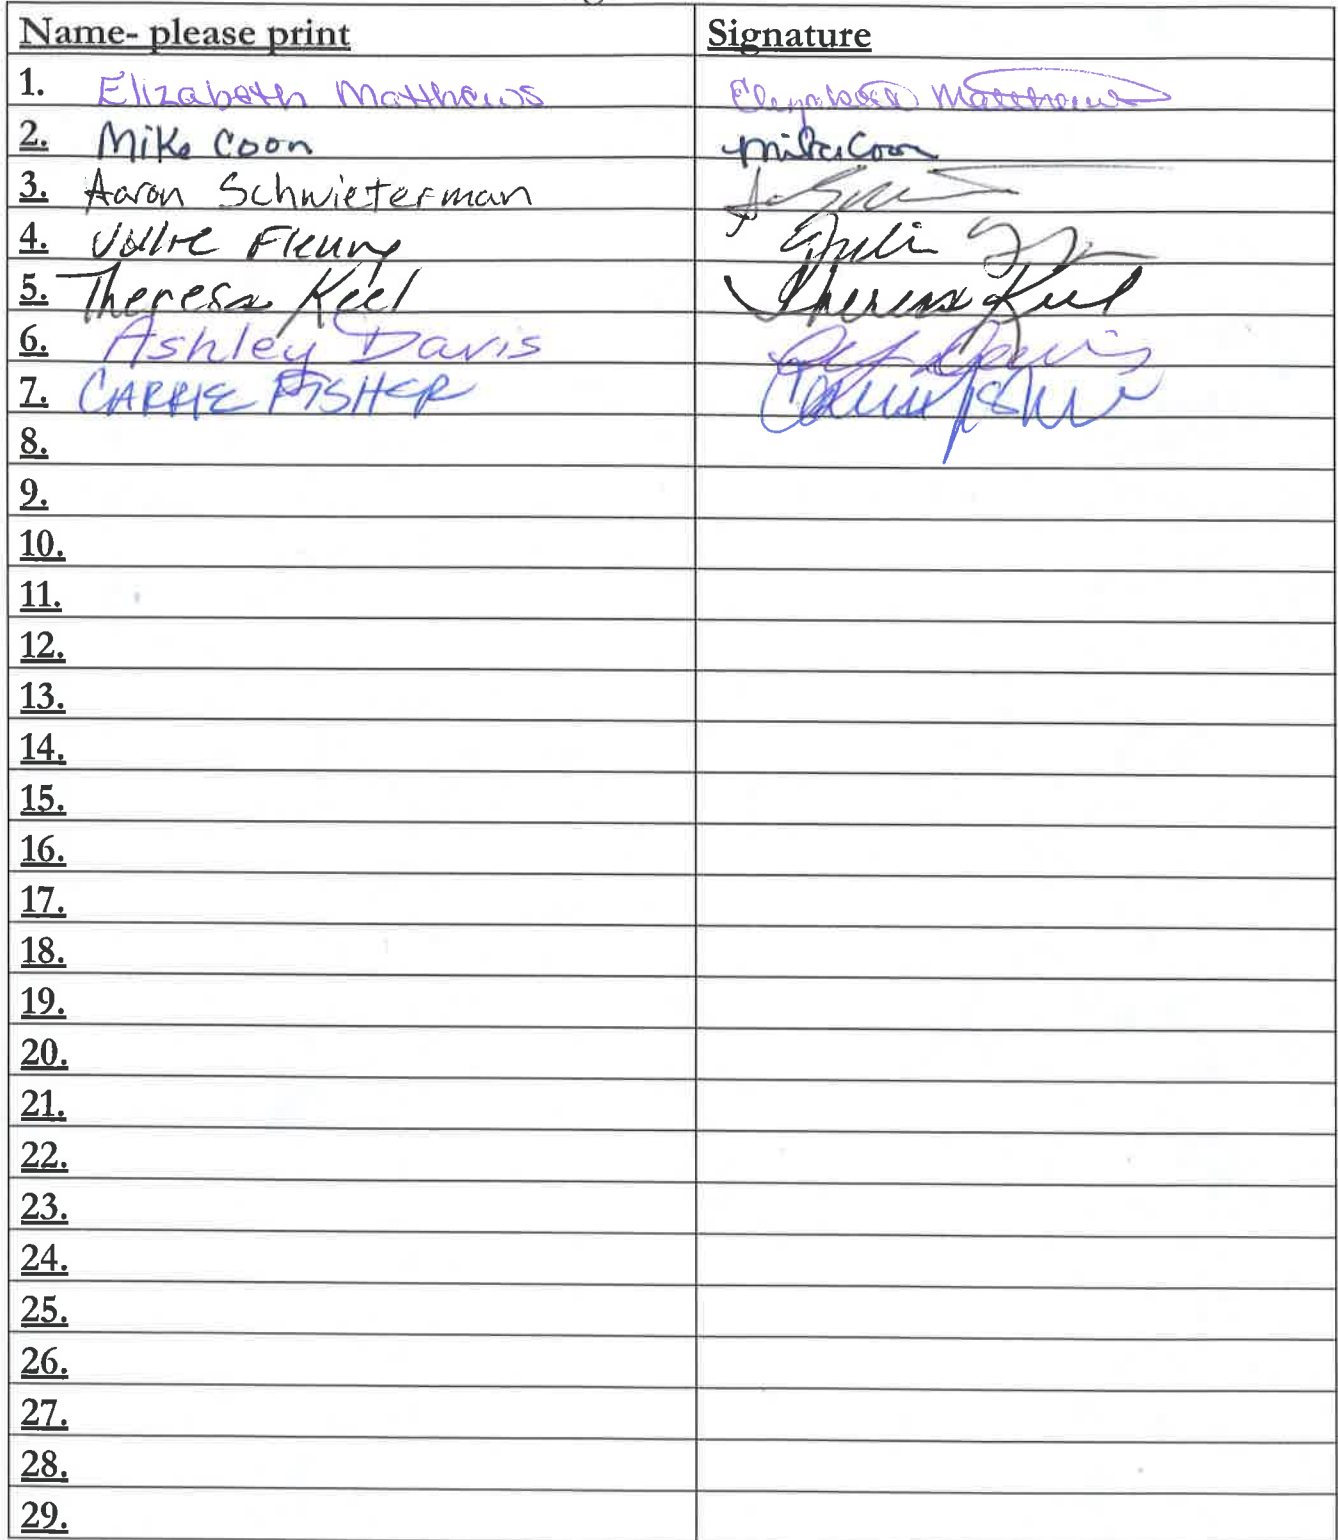 Name- please print Signature
1. Elizabeth Matthews Elizabeth Matthews
2. Mike Coon Mike Coon
3. Aaron Schwieterman
4. Julie Fleury Julie
5. Theresa Keel Theresa Keel
6. Ashley Davis Davis
7. CARRIE FISHER Carrie Fisher
8.
9.
10.
11.
12.
13.
14.
15.
16.
17.
18.
19.
20.
21.
22.
23.
24.
25.
26.
27.
28.
29.